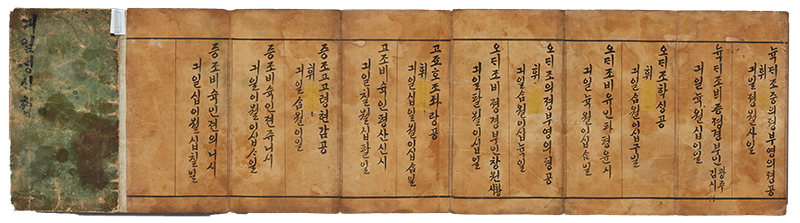 뉵ᄃᆡ조증의졍부영의졍공
휘
긔일졍월사일
뉵ᄃᆡ조비증졍경부인광쥬김시
긔일뉵월십이일
오ᄃᆡ조학성공
휘
긔일삼월이십구일
오ᄃᆡ조비유인파평윤시
긔일뉵월이십삼일
오ᄃᆡ조의졍부영의졍공
휘
긔일삼월이십뉵일
오ᄃᆡ조비졍경부인창원황시
긔일팔월이십일
고조호조좌랑공
휘
긔일십일월이십삼일
고조비숙인평산신시
긔일칠월십팔일
증조고고령현감공
휘
긔일삼월이일
증조비숙인젼쥬니시
긔일이월이십ᄉᆞ일
증조비숙인젼의니시
긔일십이월십칠일
긔일